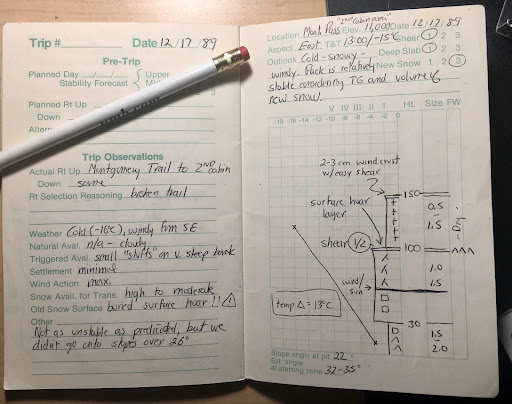 Trip # Date 12/17/89
Pre-Trip
Planned Day __/__/__ Upper
Stability Forecast Mid
Planned Rt Up
Down
Altern
Trip Observations
Actual Rt Up Montgomery Trail to 2ND cabin
Down same
Rt Selection Reasoning broken trail
Weather Cold (-15°C), windy from SE
Natural Aval. n/a - cloudy
Triggered Aval. small "sluffs" on v. steep bank
Settlement minimal
Wind Action max.
Snow Avail. for Trans. high to moderate
Old Snow Surface buried surface hoar!!
Other
Not as unstable as predicated, but we
didn't go onto slopes over 26°
"2nd cabin area"
Location Mont Pass Elev. 11,000 Date 12/17/89
Aspect East T&T 13:00/-15°C Shear 1 2 3
Outlook Cold - snowy - Deep Slab 1 2 3
windy. Pack is relatively New Snow 1 2 3
stable considering TG and volume of
new snow!
V IV III II I Ht. Size FW
-18 -16 -14 -12 -10 -8 -6 -4 -2 0
2-3 cm wind crust
w/easy shear
150
surface hoar
layer
0.5
-
1.5
shear 1/2
100
wind/
sun
1.0
-
1.5
temp Δ = 13°C
30
1.5
-
2.0
Slope angle at pit 22°
Est. angle
at starting zone 32-35°